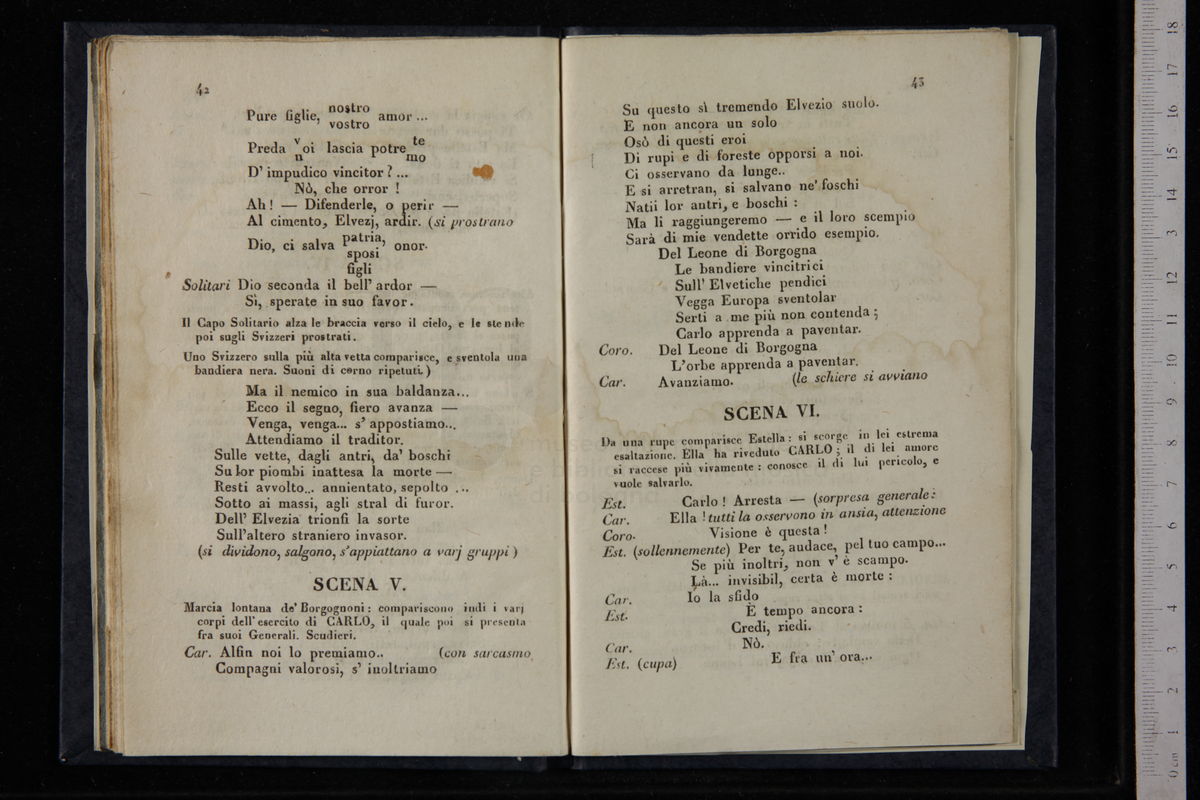 42
Pure figlie, nostro amor ...
vostro
Preda voi lascia potrete
n mo
D' impudico vincitor ? ...
Nò, che orror !
Ah ! — Difenderle, o perir —
Al cimento, Elvezj, ardir. (si prostrano
Dio, ci salva patria, onor.
sposi
figli
Solitari Dio seconda il bell' ardor —
Sì, sperate in suo favor.
Il Capo Solitario alza le braccia verso il cielo, e le stende
poi sugli Svizzeri prostrati.
Uno Svizzero sulla più alta vetta comparisce, e sventola una
bandiera nera. Suoni di corno ripetuti.)
Ma il nemico in sua baldanza...
Ecco il segno, fiero avanza —
Venga, venga... s' appostiamo...
Attendiamo il traditor.
Sulle vette, dagli antri, da' boschi
Su lor piombi inattesa la morte —
Resti avvolto... annientato, sepolto ...
Sotto ai massi, agli stral di furor.
Dell' Elvezia trionfi la sorte
Sull'altero straniero invasor.
(si dividono, salgono, s'appiattano a varj gruppi )
SCENA V.
Marcia lontana de' Borgognoni : compariscono indi i varj
corpi dell' esercito di CARLO, il quale poi si presenta
fra suoi Generali. Scudieri.
Car. Alfin noi lo premiamo.. (con sarcasmo
Compagni valorosi, s' inoltriamo
43
Su questo sì tremendo Elvezio suolo.
E non ancora un solo
Osò di questi eroi
Di rupi e di foreste opporsi a noi.
Ci osservano da lunge..
E si arretran, si salvano ne' foschi
Natii lor antri, e boschi :
Ma li raggiungeremo — e il loro scempio
Sarà di mie vendette orrido esempio.
Del Leone di Borgogna
Le bandiere vincitrici
Sull' Elvetiche pendici
Vegga Europa sventolar
Serti a me più non contenda ;
Carlo apprenda a paventar.
Coro. Del Leone di Borgogna
L'orbe apprenda a paventar.
Car. Avanziamo. (le schiere si avviano
SCENA VI.
Da una rupe comparisce Estella : si scorge in lei estrema
esaltazione. Ella ha riveduto CARLO ; il di lei amore
si raccese più vivamente : conosce il di lui pericolo, e
vuole salvarlo.
Est. Carlo ! Arresta — (sorpresa generale :
Car. Ella ! tutti la osservono in ansia, attenzione
Coro. Visione è questa !
Est. (sollennemente) Per te, audace, pel tuo campo...
Se più inoltri, non v' è scampo.
Là... invisibil, certa è morte :
Car. Io la sfido
Est. È tempo ancora :
Credi, riedi.
Car. Nò.
Est. (cupa) E fra un' ora...